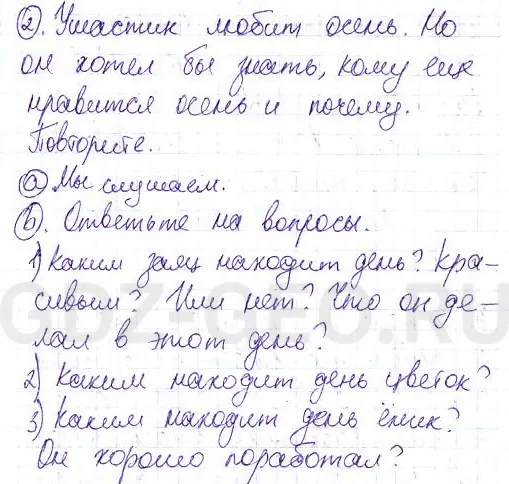 2. Ушастик любит осень. Но
он хотел бы знать, кому еще
нравится осень и почему.
Повторите.
а Мы слушаем.
b. Ответьте на вопросы.
1) Каким заяц находит день? Кра-
сивым? Или нет? Что он де-
лал в этот день?
2) Каким находит день цветок?
3) Каким находит день ёжик?
Он хорошо поработал?
GDZ-GEO.RU